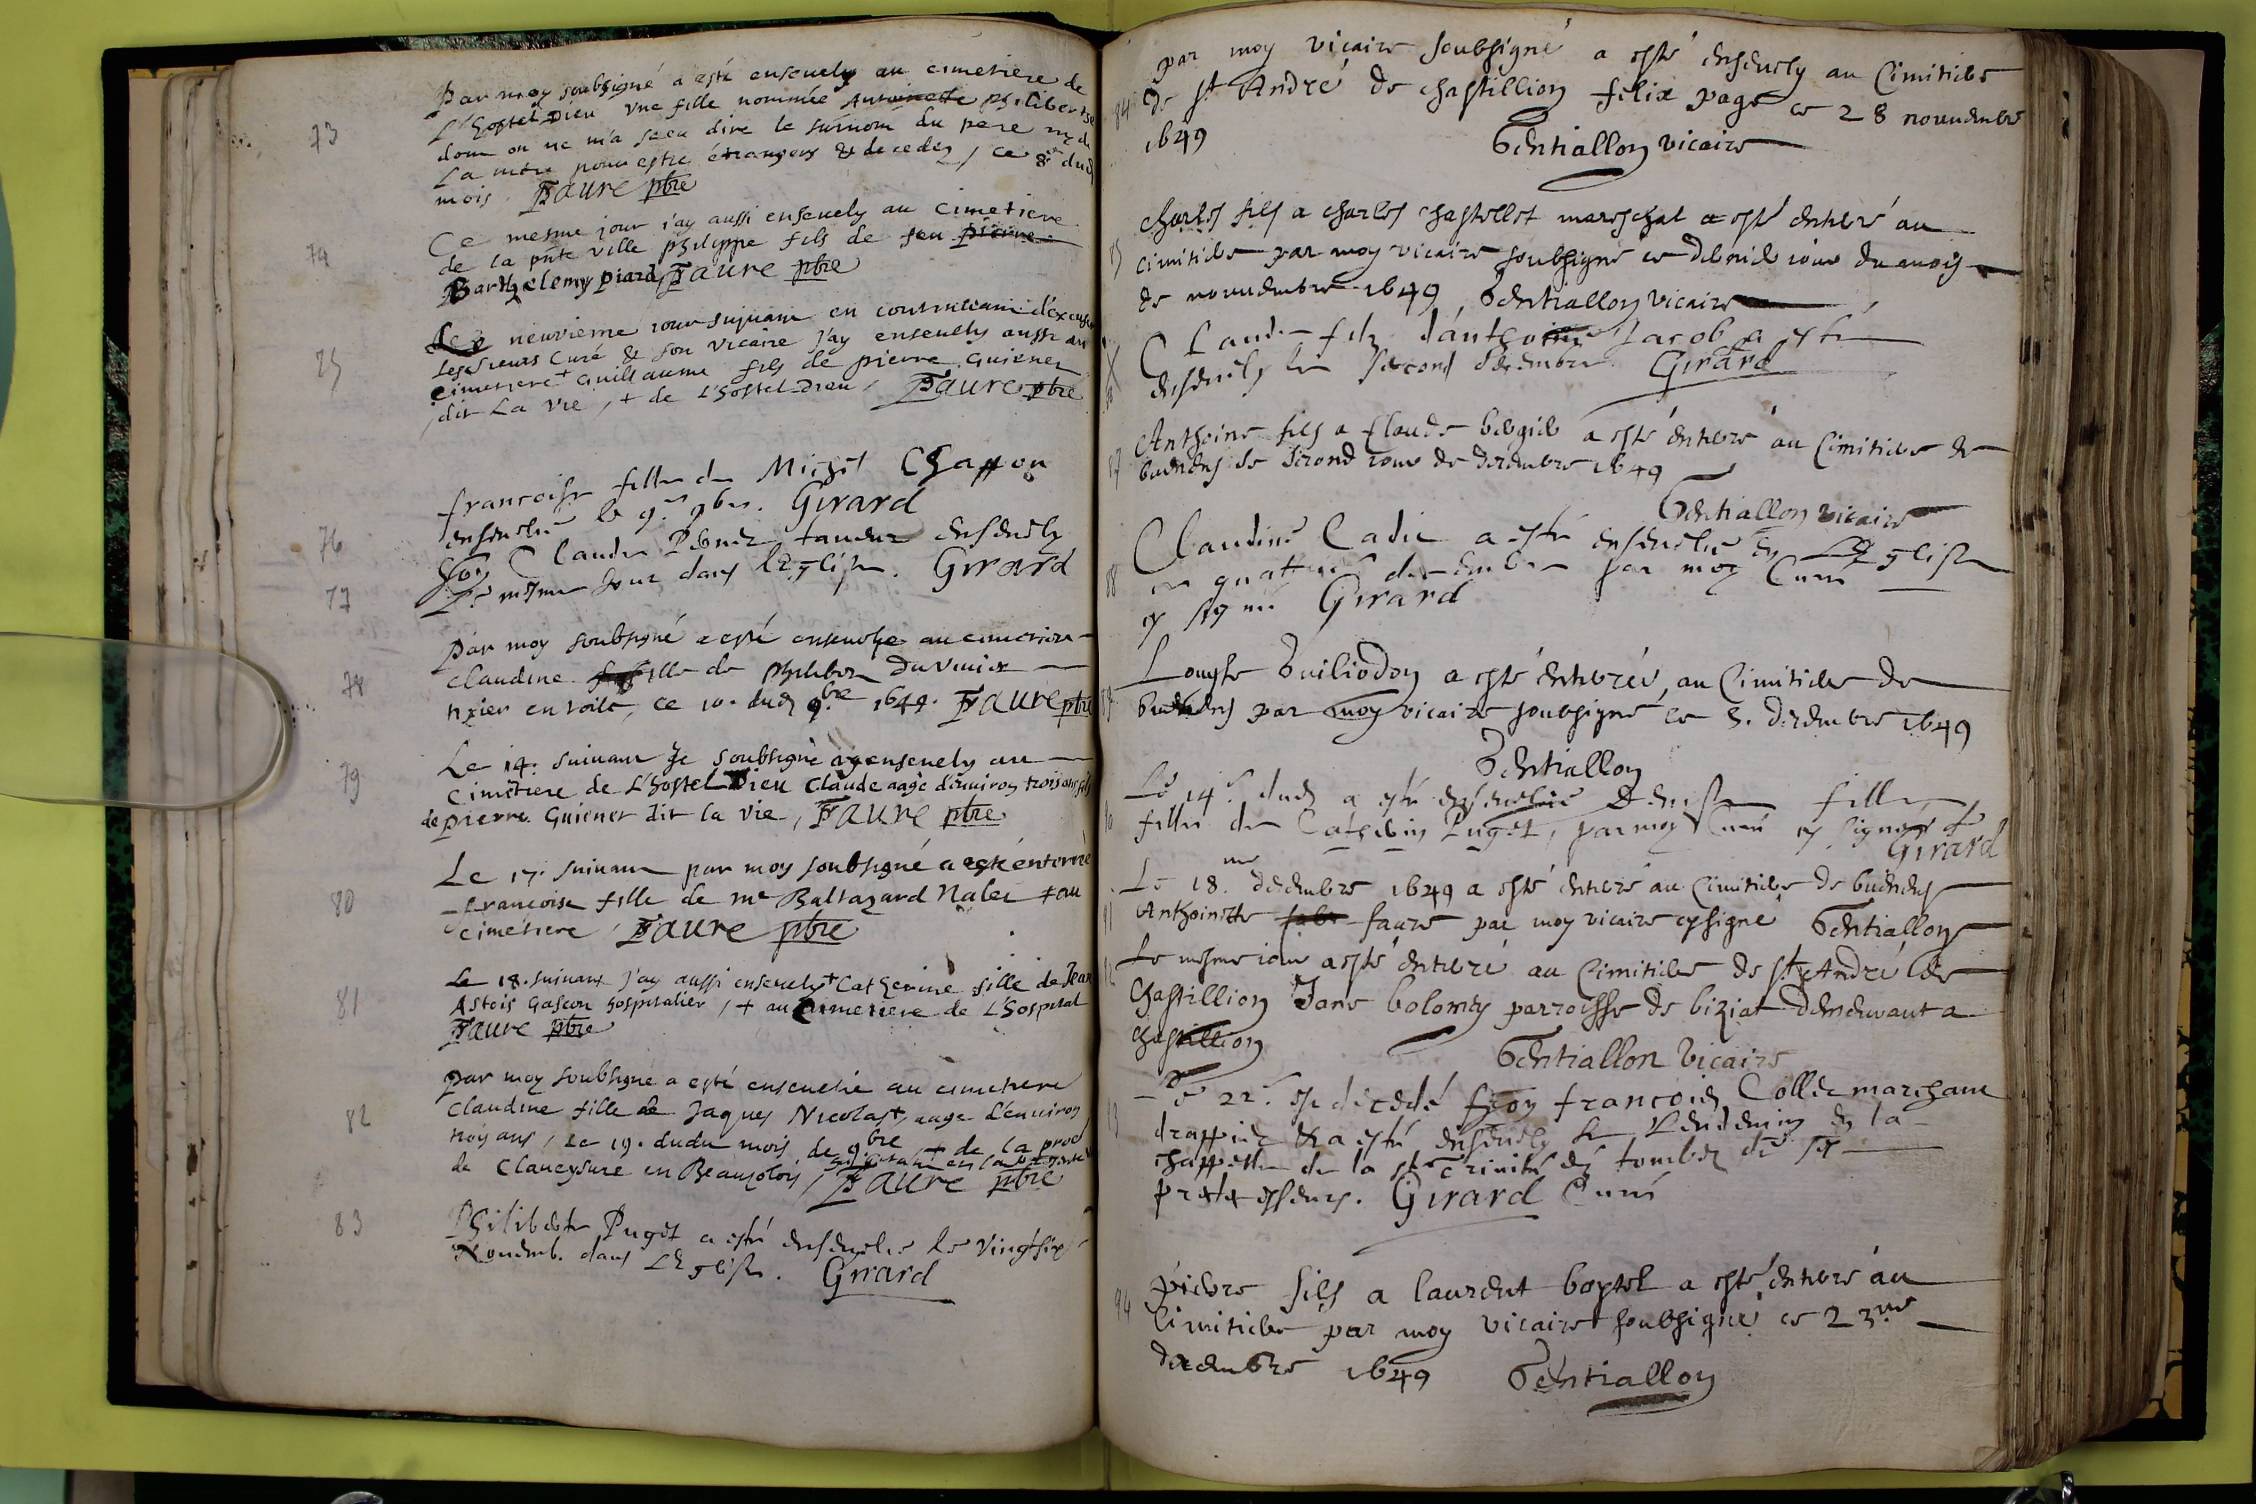 73
Par moy soubsigné a esté ensevely au cimetiere de
L'hostel Dieu vne fille nommée Antoinette philiberte
dont on ne m'a sceu dire le surnom du pere ny de
La mere pour estre étrangers & decedez, ce 8e dud
mois. Faure pbre
74
Ce mesme jour j'ay aussi ensevely au cimetiere
de la pnte ville philippe fils de feu pierre
Barthelemy piard, Faure pbre
75
Le neuvieme jour suivant en
Les Sieurs Curé & son vicaire j'ay ensevely aussi au
cimetiere + Guillaume fils de pierre Guienet
dit La vie, + de L'hostel-Dieu, Faure pbre
76
francoise fille de Michel Chappon
ensevelie le 9e 9bre. Girard
77
hon Claude taneur ensevely
Le mesme jour dans l'Eglise. Girard
78
Par moy soubsigné a esté ensevelye au cimetiere
claudine fille de philibert Duvivier
tixier en toile, ce 10. dud 9bre 1649. Faure pbre
79
Le 14. suivant Je soubsigné ay ensevely au
cimetiere de L'hostel Dieu Claude aagé d'environ trois ans fils
de pierre Guienet dit la vie, Faure pbre
80
Le 17. suivant par moy soubsigné a esté enterrée
francoise fille de me Baltazard Nalet + au
cimetiere, Faure pbre
81
Le 18. suivant j'ay aussi ensevely + Catherine fille de Jean
Astois Gascon hospitalier, + au cimetiere de L'hospital
Faure pbre
82
par moy soubsigné a esté ensevelie au cimetiere
Claudine fille de Jaques Nicolas +, aage d'environ
trois ans, le 19. dudit mois de 9bre + de la
de Claveysure en Beaujolois, Faure pbre
83
Philiberte Puget a esté ensevelie le vingtsix
Novemb. dans L'Eglise. Girard
84
par moy vicaire soubsigné a esté ensevely au Cimitiere
de st André de chastillion felix page ce 28 nouembre
1649 Tentiallon vicaire
Charles fils a charles chastellet mareschal a esté enterré au
cimitiere par moy vicaire soubsigné ce dernier iour du moys
de nouembre 1649, Tentiallon vicaire
Claude filz d'anthoine Jacob a esté
ensevely le second decembre. Girard
87
Anthoine fils a Claude bergier a esté enterré au Cimitiere de
buenens le second iour de decembre 1649
Tentiallon vicaire
88
Claudine Cadit a esté ensevelie en L'Eglise
ce quattre decembre par moy Curé
cy signé Girard
Louyse builiodon a esté enterrée, au Cimitiere de
buenens par moy vicaire soubsigné ce 5. decembre 1649
Tentiallon
Le 14e dud a esté ensevelie Denise fille
fille de Catherin Puget, par moy Curé cy signé
Girard
Le 18.me decembre 1649 a esté enterré au Cimitiere de buenens
Anthoinette faure par moy vicaire cysigné Tentiallon
Le mesme iour a esté enterré au Cimitiere de st André de
Chastillion Jane bolomey parroisse de biziat demeurant a
chastillion
Tentiallon Vicaire
Le 22e est decedé hon francois Collet marchant
drappier & a esté ensevely le Lendemin en la
chappelle de la ste Trinité és tombes de ses
predecesseurs. Girard Curé
94
pierre fils a laurent boytel a esté enterré au
Cimitiere par moy vicaire soubsigné ce 23me
decembre 1649 Tentiallon